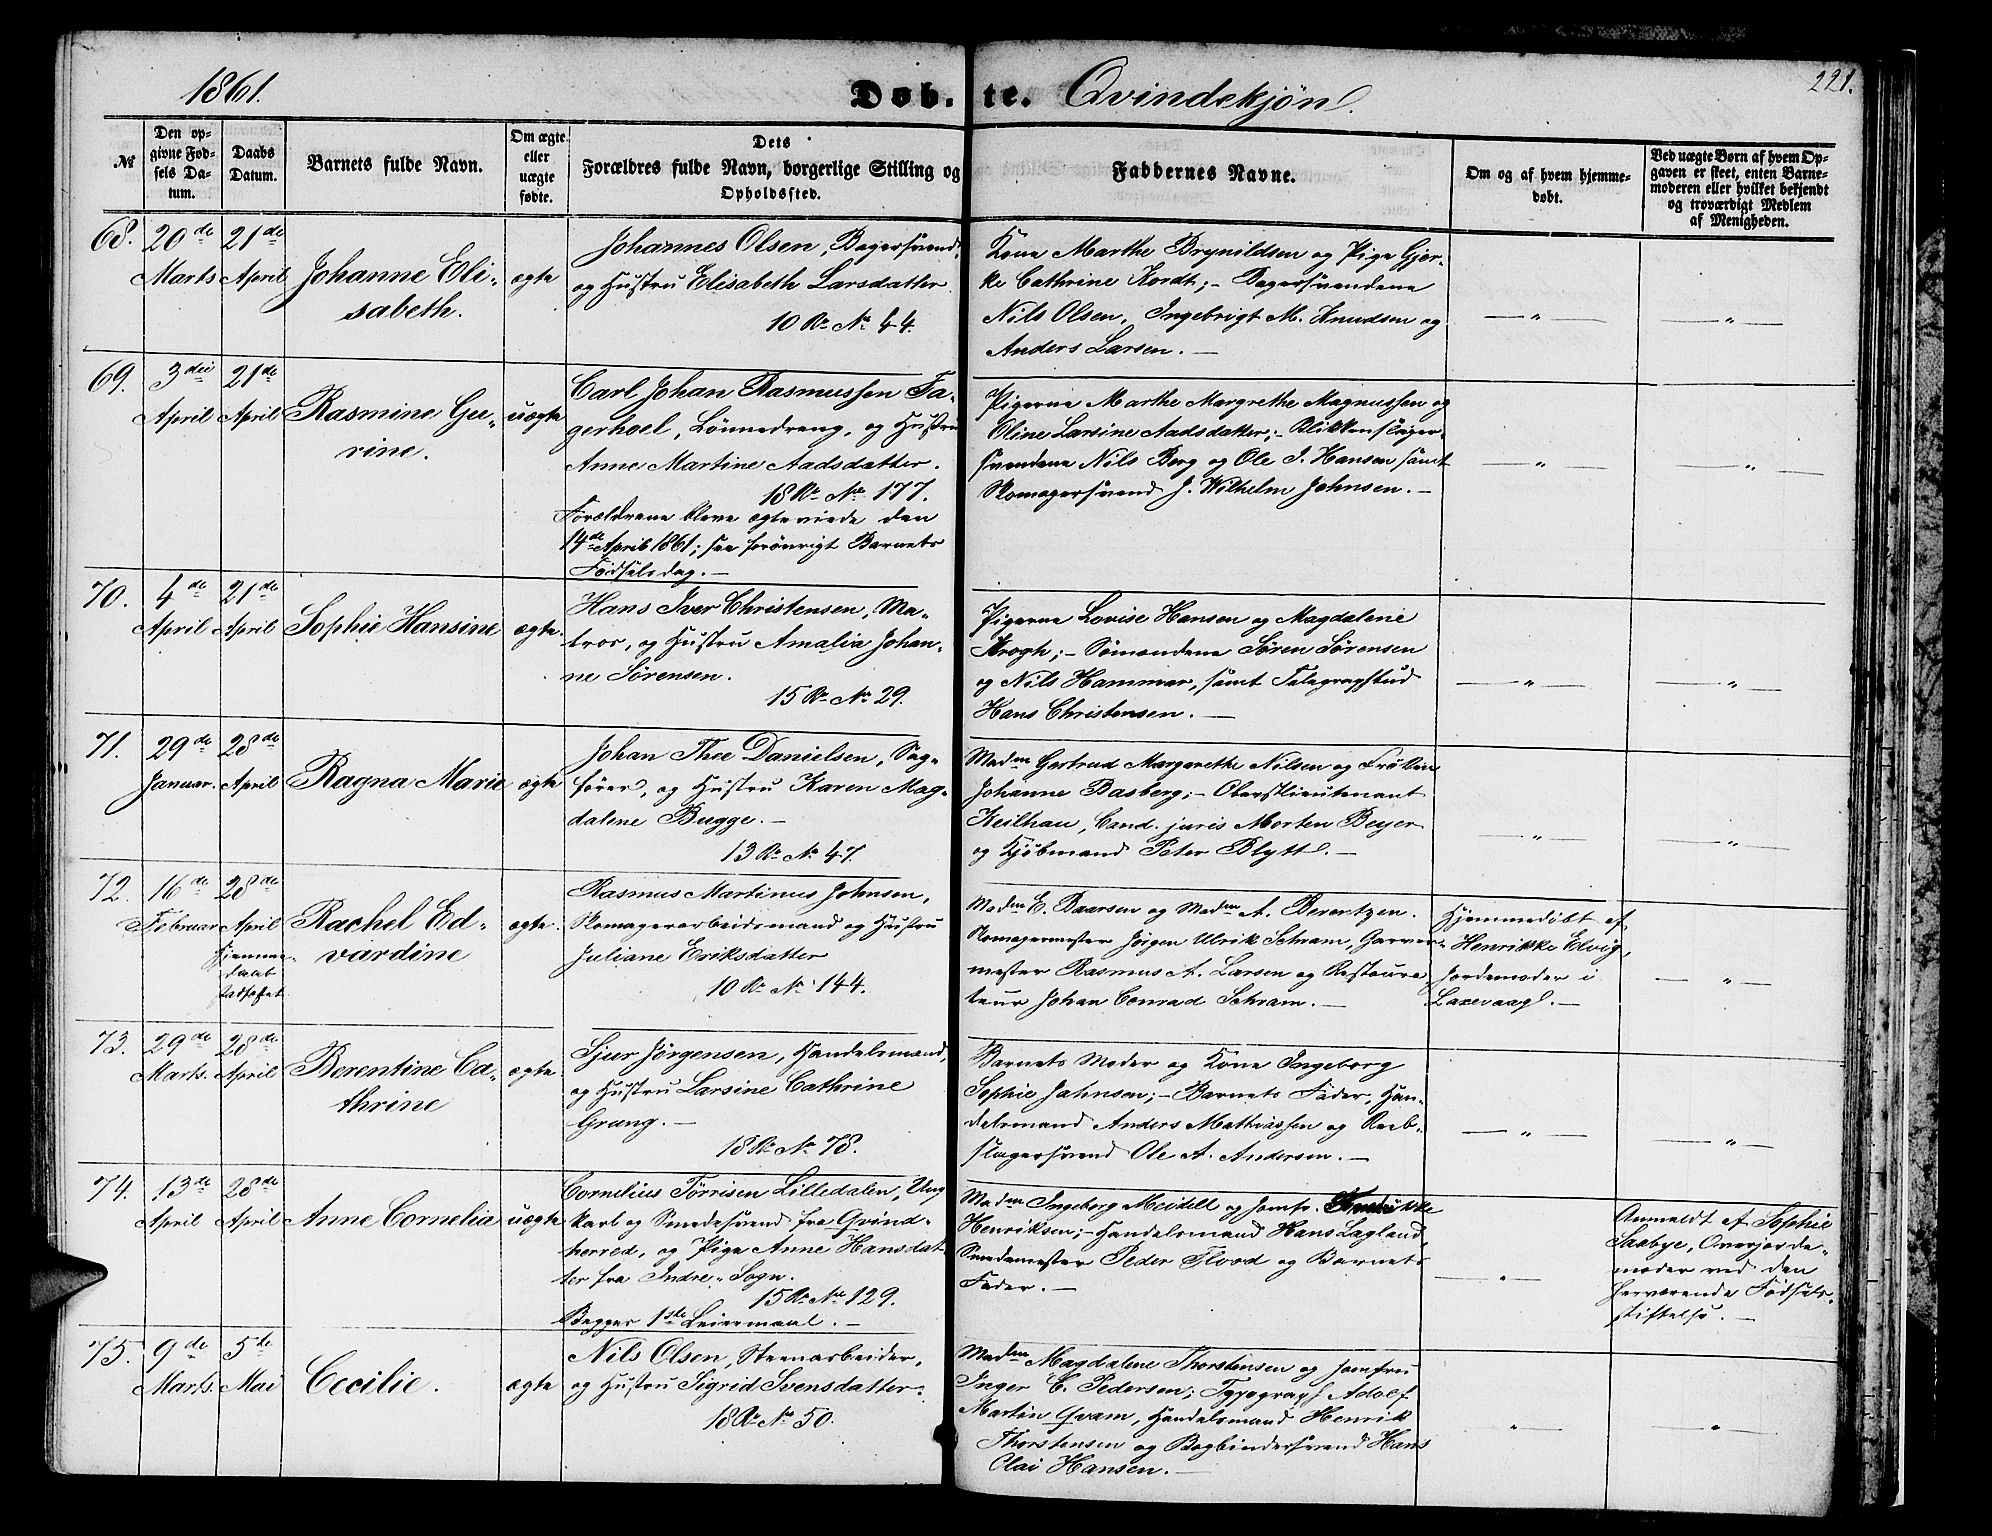 1861.
Døb-te. Qvindekjøn.
221.
№
Den opgivne Fødsels Datum.
Daabs Datum.
Barnets fulde Navn.
Om ægte eller uægte fødte.
Dets Forældres fulde Navn, borgerlige Stilling og Opholdssted.
Faddernes Navne.
Om og af hvem hjemmedøbt.
Ved uægte Børn af hvem Opgaven er skeet, enten Barnemoderen eller hvilket bekjendt og troværdigt Medlem af Menigheden.
68.
20de Marts
21de April
Johanne Eli-
sabeth.
ægte
Johannes Olsen, Bagersvend,
og Hustru Elisabeth Larsdatter
10 R. No 44.
Kone Marthe Brynildsen og Pige Gjer-
ke Cathrine Kordt; - Bagersvendene
Nils Olsen, Ingebrigt M. Knudsen og
Anders Larsen. —
— „ —
— „ —
69.
3die April
21de April
Rasmine Gu-
rine.
uægte
Carl Johan Rasmussen Fa-
gerhoel, Lønnedreng, og Hustru
Anne Martine Aadsdatter.
18 R. No 177.
Forældrene bleve ægteviede den
14de April 1861; saa forøvrigt Barnets
Fødselsdag. —
Pigerne Marthe Margrethe Magnussen og
Oline Larsine Aadsdatter; - Blikkenslager-
svendene Nils Berg og Ole J. Hansen samt
Skomagersvend J. Wilhelm Johnsen. —
— „ —
— „ —
70.
4de April
21de April
Sophie Hansine
ægte.
Hans Iver Christensen, Ma-
tros, og Hustru Amalia Johan-
ne Sørensen.
15 R. No 29.
Pigerne Lovise Hansen og Magdalene
Krogh; - Sømændene Søren Sørensen
og Nils Hammer, samt Telegrafstud
Hans Christensen. —
— „ —
— „ —
71.
29de Januar.
28de April
Ragna Marie
ægte
Johan Thee Danielsen, Sag-
fører, og Hustru Karen Mag-
dalene Bugge. —
13 R. No 47.
Madm Gertrud Margarethe Nilsen og Frøken
Johanne Basberg; - Oberstlieutenant
Keilhau, Cand. juris Morten Beyer
og Kjøbmand Peter Blytt. —
— „ —
— „ —
72.
16de Februar
28de April
Hjemme-
daab
stadfæstet
Rachel Ed-
vardine
ægte.
Rasmus Martinus Johnsen,
Skomagerarbeidsmand og Hustru
Juliane Eriksdatter
10 R. No 144.
Madm E. Baarsen og Madm A. Berentzen.
Skomagermester Jørgen Ulrik Schram, Garver-
mester Rasmus A. Larsen og Restaura-
teur Johan Conrad Schram. —
Hjemmedøbt af
Henrikke Edvig,
Jordemoder i
Laxevaag. —
— „ —
73.
29de Marts.
28de April
Berentine Ca-
thrine
ægte.
Sjur Jørgensen, Handelsmand,
og Hustru Larsine Cathrine
Grung. —
18 R. No 78.
Barnets Moder og Kone Ingeborg
Sophie Jahnsen; - Barnets Fader, Han-
delsmand Anders Mathiassen og Reeb-
slagersvend Ole A. Andersen. —
— „ —
— „ —
74.
13de April
28de April
Anne Cornelia
uægte
Cornelius Tørrisen Lilledalen, Ung-
karl og Smedesvend fra Qvind-
herred, og Pige Anne Hansdat-
ter fra Indre-Sogn.
15 R. No 129.
Begges 1ste Leiermaal. —
Madm Ingeborg Meidell og Jomfr.
Henriksen; - Handelsmand Hans Lagland,
Smedemester Peder Flood og Barnets
Fader. —
— „ —
Anmeldt af Sophie
Saabye, Overjorde-
moder ved den
herværende Fødsels-
stiftelse. —
75.
9de Marts.
5te Mai
Cecilie.
ægte
Nils Olsen, Steenarbeider,
og Hustru Sigrid Svensdatter.
18 R. No 50.
Madm Magdalene Thorstensen og Jomfru
Inger C. Pedersen; Typograph Adolf
Martin Qvam, Handelsmand Henrik
Thorstensen og Bogbindersvend Hans
Clai Hansen. —
— „ —
— „ —